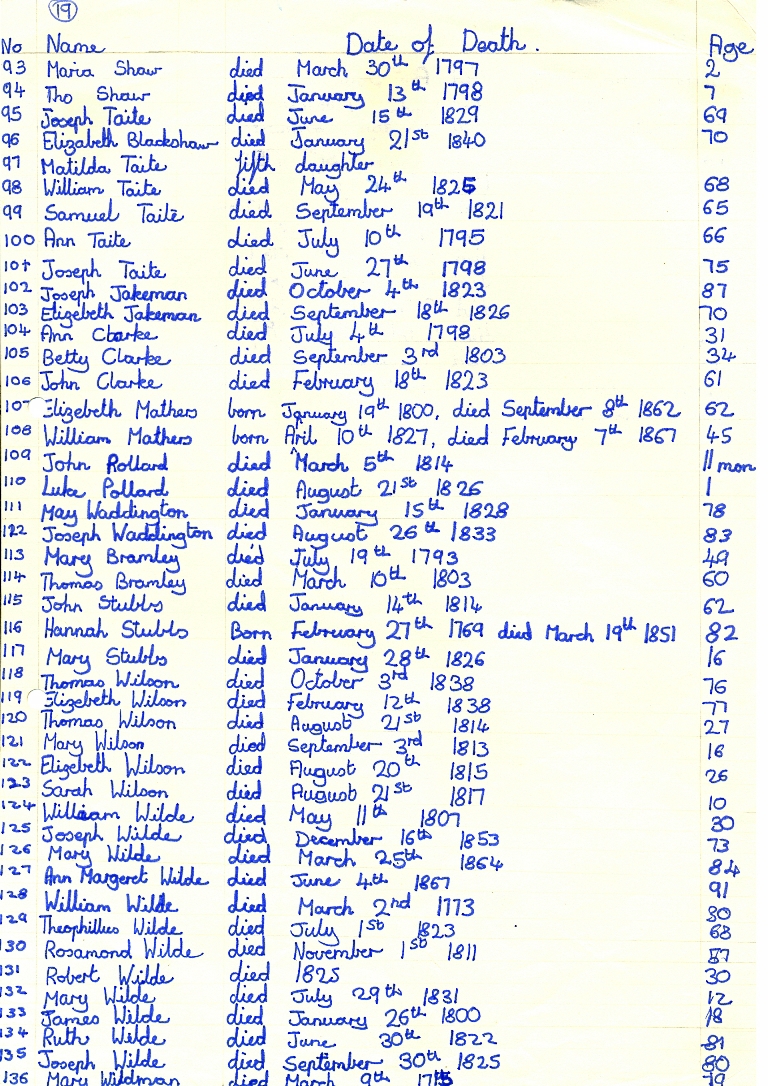 19
No Name Date of Death. Age
93 Maria Shaw died March 30th 1797 2
94 Tho Shaw died January 13th 1798 7
95 Joseph Taite died June 15th 1829 69
96 Elizabeth Blackshaw died January 21st 1840 70
97 Matilda Taite fifth daughter
98 William Taite died May 24th 1825 68
99 Samuel Taite died September 19th 1821 65
100 Ann Taite died July 10th 1795 66
101 Joseph Taite died June 27th 1798 75
102 Joseph Jakeman died October 4th 1823 87
103 Elizebeth Jakeman died September 18th 1826 70
104 Ann Clarke died July 4th 1798 31
105 Betty Clarke died September 3rd 1803 34
106 John Clarke died February 18th 1823 61
107 Elizebeth Mathers born January 19th 1800, died September 8th 1862 62
108 William Mathers born Aril 10th 1827, died February 7th 1867 45
109 John Rollard died March 5th 1814 11 mon
110 Luke Pollard died August 21st 1826 1
111 May Waddington died January 15th 1828 78
122 Joseph Waddington died August 26th 1833 83
113 Mary Bramley died July 19th 1793 49
114 Thomas Bramley died March 10th 1803 60
115 John Stubbs died January 14th 1814 62
116 Hannah Stubbs Born February 27th 1769 died March 19th 1851 82
117 Mary Stubbs died January 28th 1826 16
118 Thomas Wilson died October 3rd 1838 76
119 Elizebeth Wilson died February 12th 1838 77
120 Thomas Wilson died August 21st 1814 27
121 Mary Wilson died September 3rd 1813 16
122 Elizebeth Wilson died August 20th 1815 26
123 Sarah Wilson died August 21st 1817 10
124 William Wilde died May 11th 1807 30
125 Joseph Wilde died December 16th 1853 73
126 Mary Wilde died March 25th 1864 84
127 Ann Margeret Wilde died June 4th 1867 91
128 William Wilde died March 2nd 1773 80
129 Theophillies Wilde died July 1st 1823 68
130 Rosamond Wilde died November 1st 1811
131 Robert Wilde died 1825 30
132 Mary Wilde died July 29th 1831 12
133 James Wilde died January 26th 1800 18
134 Ruth Wilde died June 30th 1822 81
135 Joseph Wilde died September 30th 1825 80
136 Mary Wildman died March 9th